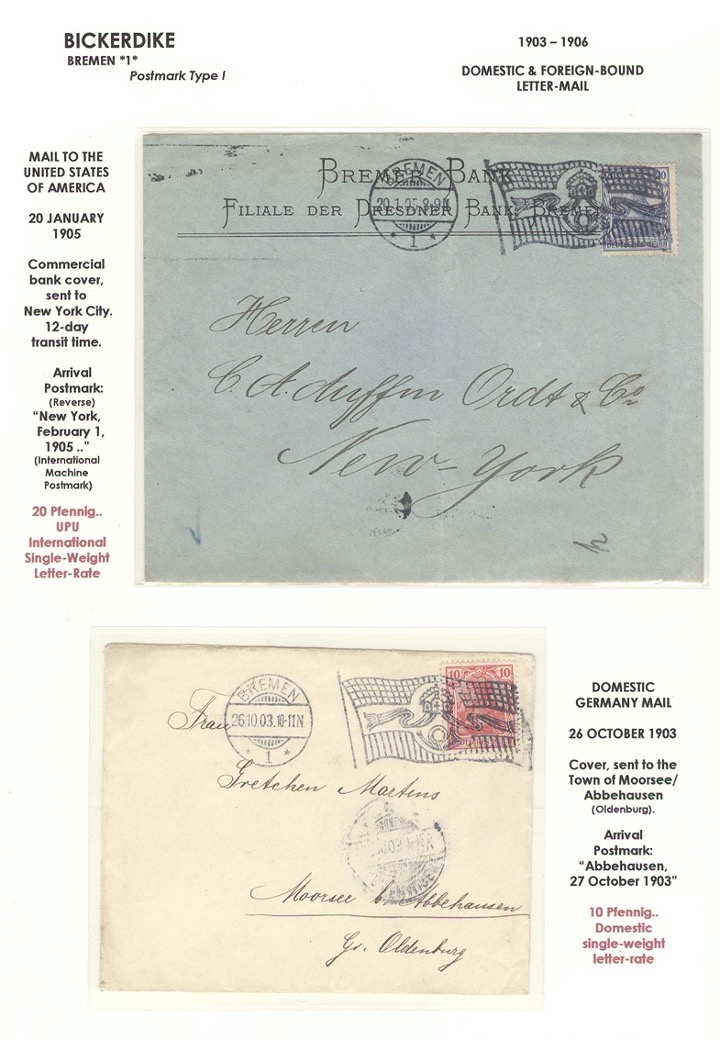 BICKERDIKE
BREMEN *1*
Postmark Type I
1903 – 1906
DOMESTIC & FOREIGN-BOUND
LETTER-MAIL
MAIL TO THE
UNITED STATES
OF AMERICA
20 JANUARY
1905
Commercial
bank cover,
sent to
New York City.
12-day
transit time.
Arrival
Postmark:
(Reverse)
“New York,
February 1,
1905 ..”
(International
Machine
Postmark)
20 Pfennig..
UPU
International
Single-Weight
Letter-Rate
BREMER BANK
FILIALE DER DRESDNER BANK, BREMEN
BREMEN
* 1 *
20
Herren
New-York
BREMEN
26.10.03.10-11N
* 1 *
10 10
Frau
Gretchen Martens
Moorsee b. Abbehausen
Gr. Oldenburg
DOMESTIC
GERMANY MAIL
26 OCTOBER 1903
Cover, sent to the
Town of Moorsee/
Abbehausen
(Oldenburg).
Arrival
Postmark:
“Abbehausen,
27 October 1903”
10 Pfennig..
Domestic
single-weight
letter-rate